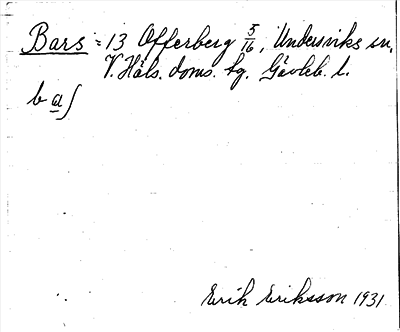 Bars = 13 Offerberg 5/16, Undersviks sn,
V. Häls. doms. hg. Gävleb. l.
b a ʃ
Erik Eriksson 1931